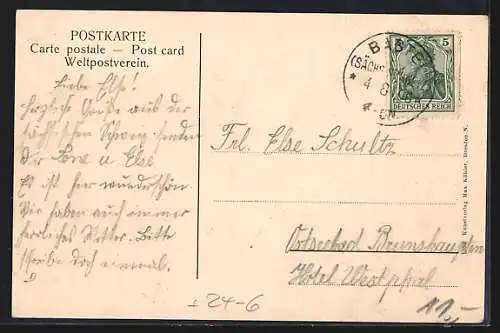 POSTKARTE
Carte postale — Post card
Weltpostverein.
Liebe Else!
Herzliche Grüße aus der
sächsischen Schweiz senden
Dir Lowe u Else
Es ist hier wunderschön.
Wir haben auch immer
herrliches Wetter. Bitte
schreibe doch einmal.
BASTEI
(SÄCHS.
4 8
DEUTSCHES REICH
5
Frl. Else Schultz
Ostseebad Brunshaupten
Hôtel Westphal
Kunstverlag Max Köhler, Dresden-N.
+ 24-6
11.-